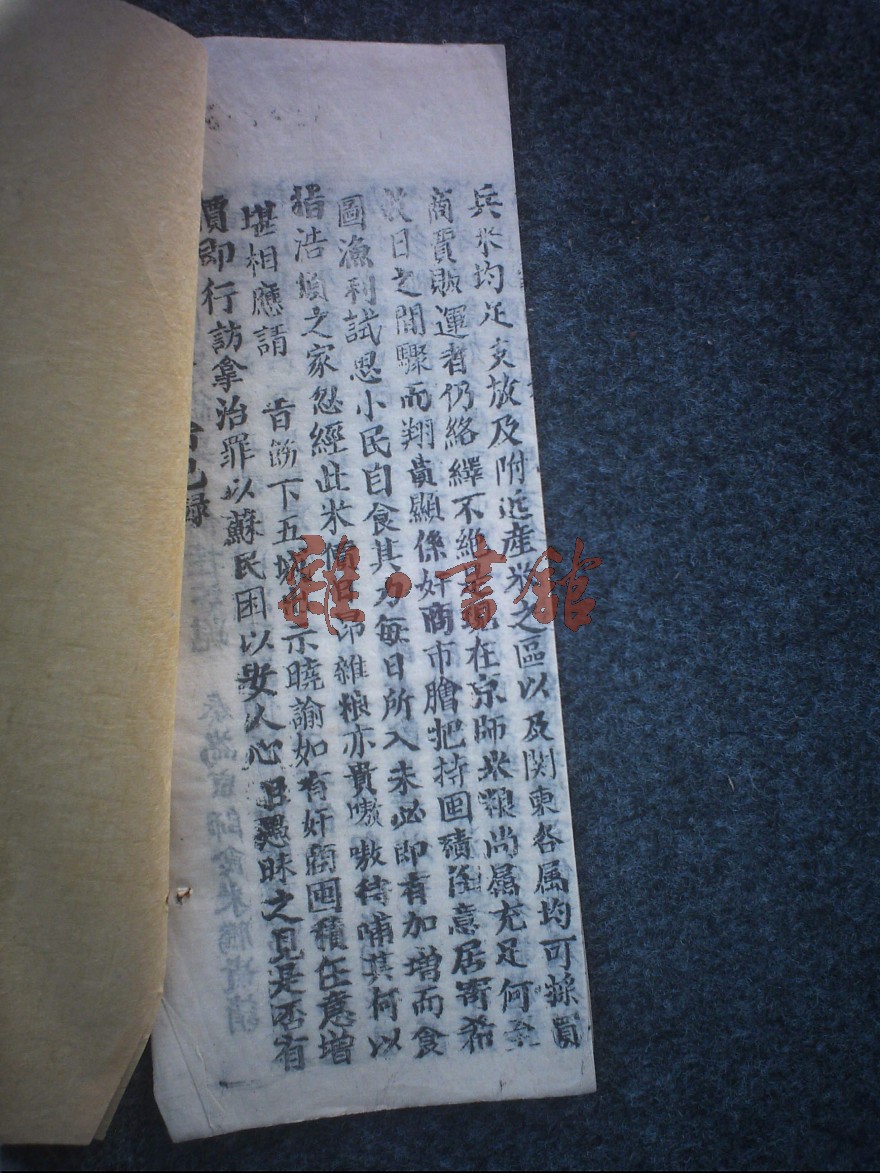 兵米均足支放及附近產米之區以及関東各属均可採買
商賈販運者仍絡繹不絶是現在京師米粮尚屬充足何至
数日之間驟而翔貴顯係奸商市膾把持囤積任意居竒希
圖漁利試思小民自食其力每日所入未必即有加增而食
指浩煩之家忽經此米價昂雜粮亦貴嗷嗷待哺其何以
堪相應請 旨飭下五城出示曉諭如有奸商囤積任意增
價即行訪拿治罪以蘇民困以安人心臣愚昧之見是否有
雜·書館